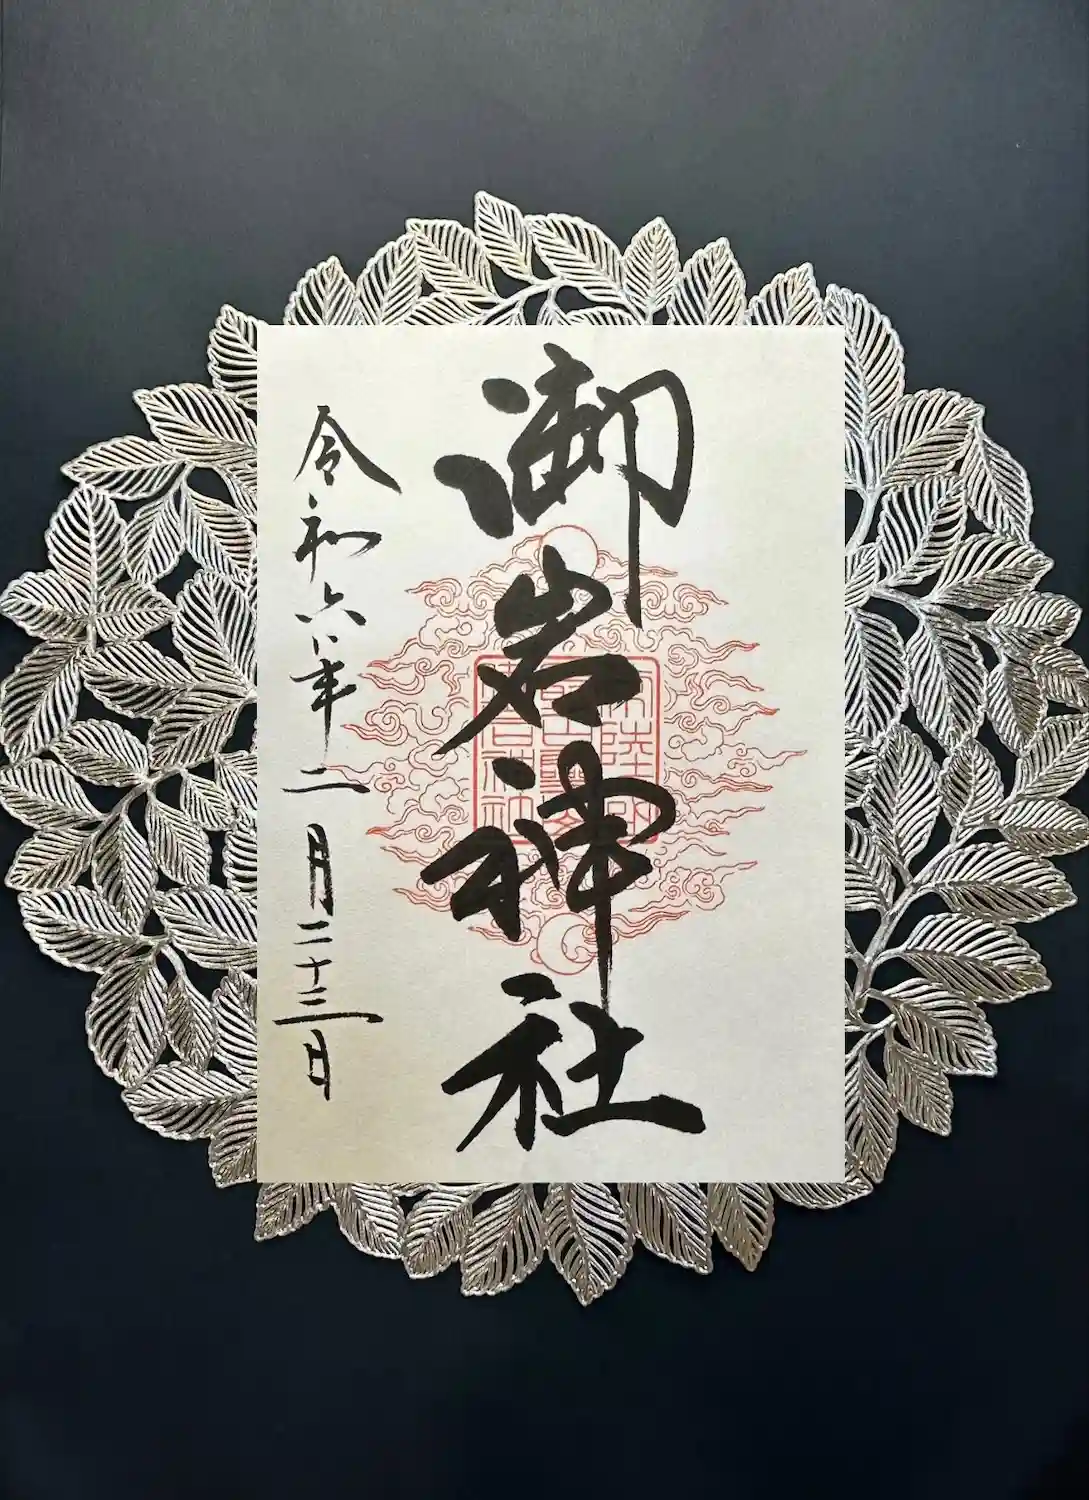 御岩神社
令和六年二月二十三日